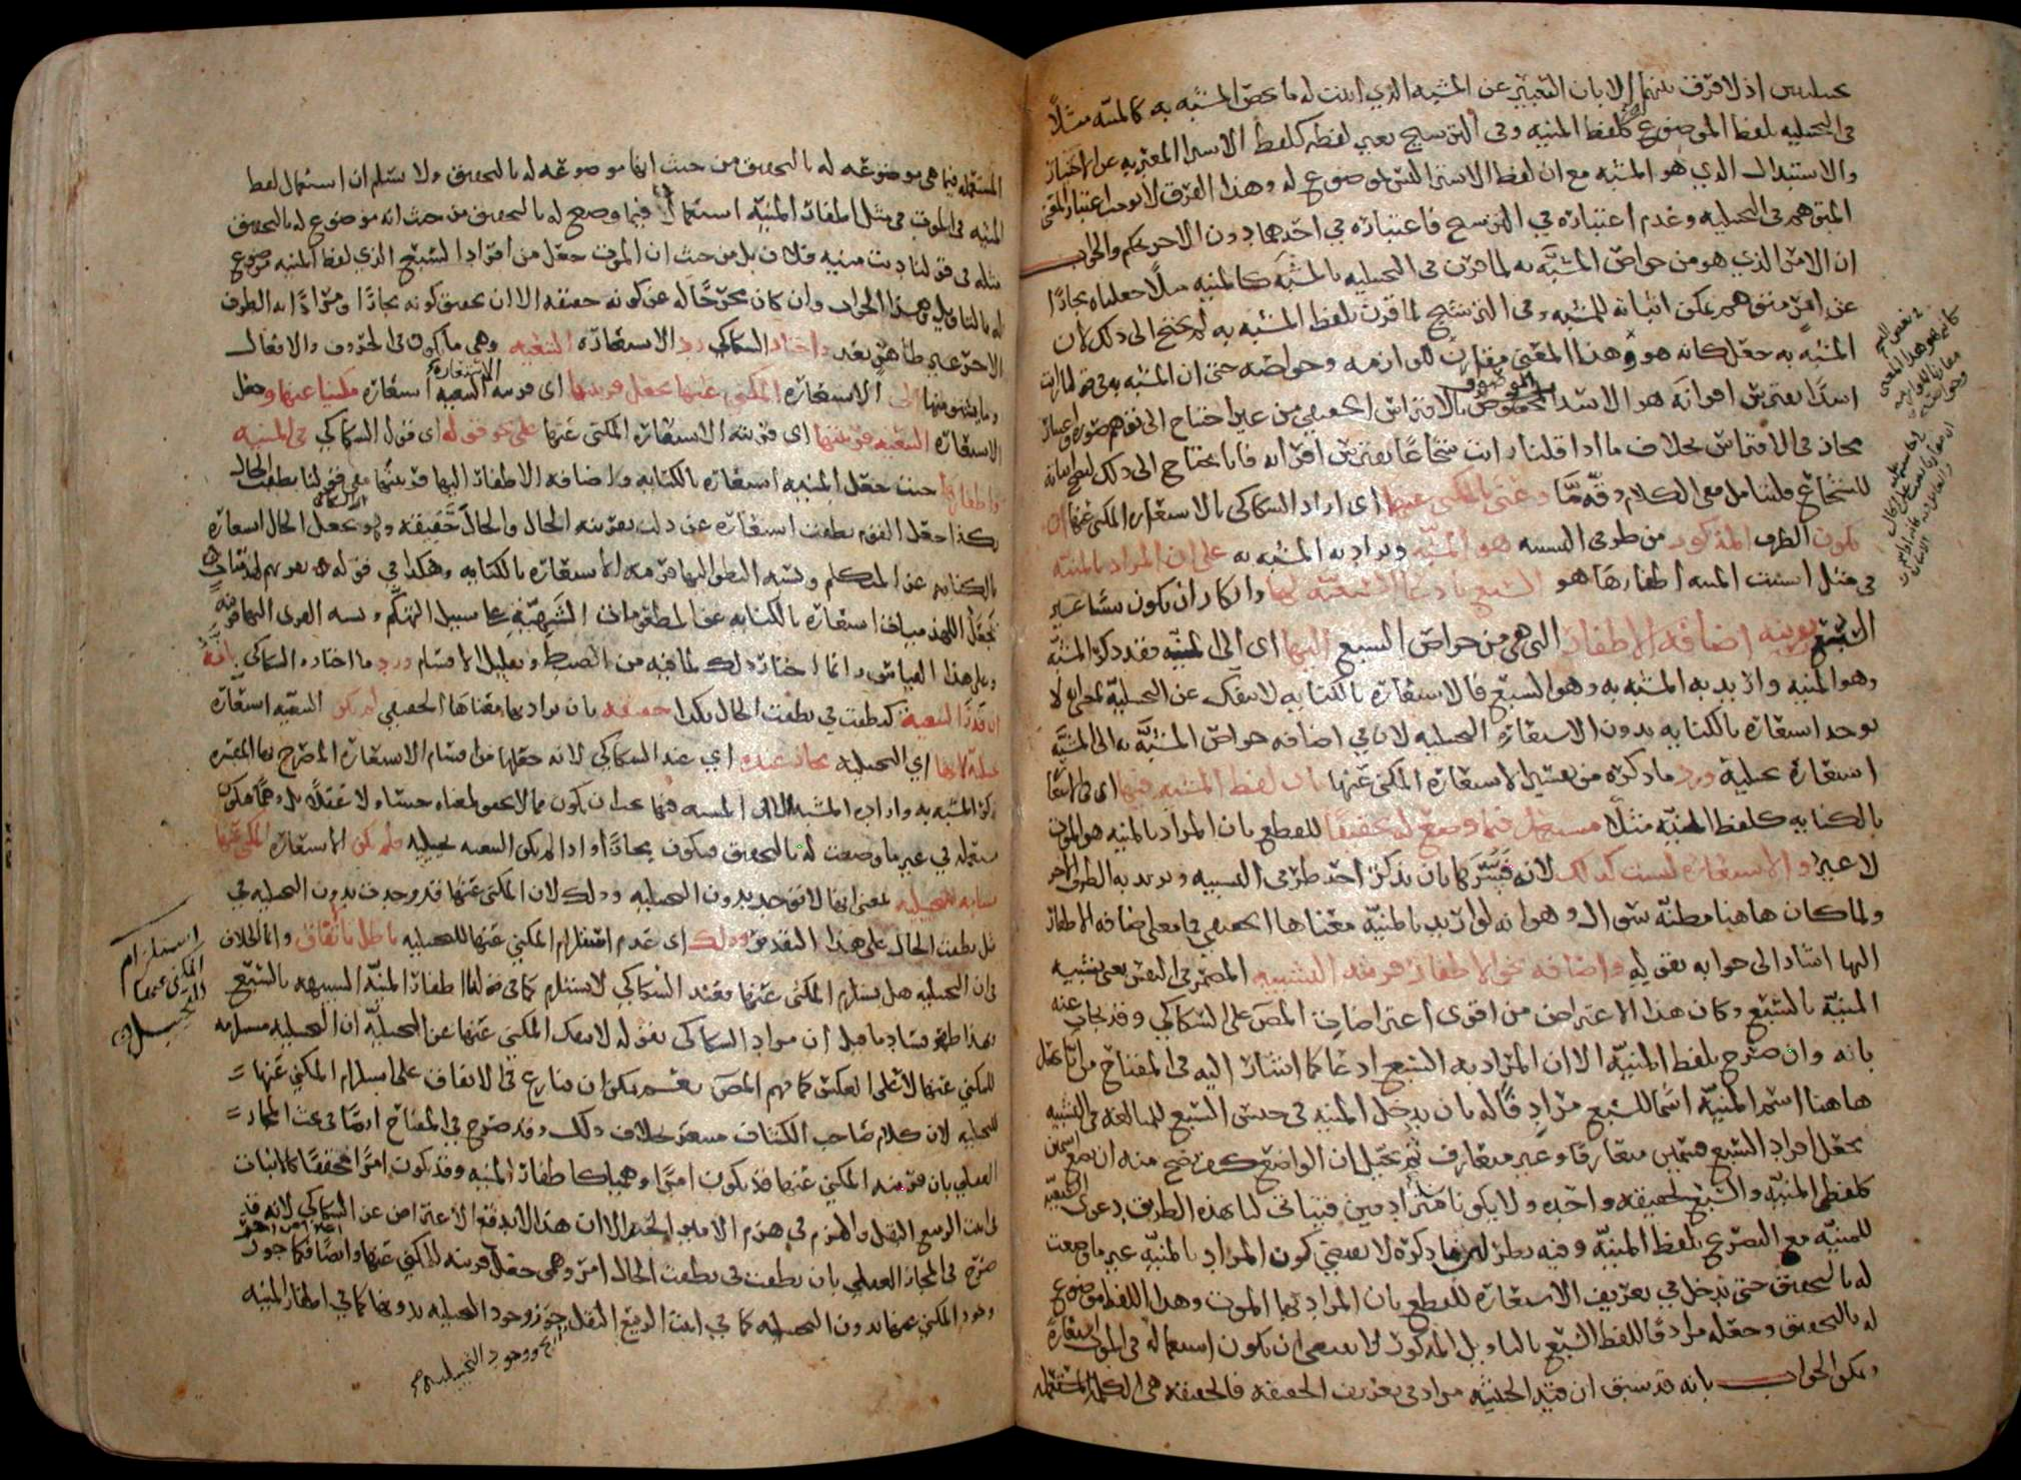 تخييلية اذ لا فرق بينهما الا بان التعبير عن المشبه الذي اثبت له ما يخص المشبه به كالمنية مثلا
في التخييلية بلفظ الموضوع كلفظ المنية وفي الترشيح بغير لفظه كلفظ الاشترا المعبر به عن الاختيار
والاستبدال الذي هو المشبه مع ان لفظ الاشترا ليس بموضوع له وهذا الفرق لا يوجب اعتبار المعنى
المتوهم في التخييلية وعدم اعتباره في الترشيح فاعتباره في احدهما دون الاخر تحكم والجواب
ان الامر الذي هو من خواص المشبه به لما قرن في التخييلية بالمشبه كالمنية مثلا جعلناه مجازا
عن امر متوهم يمكن اثباته للمشبه وفي الترشيح لما قرن بلفظ المشبه به لم يحتج الى ذلك لان
المشبه به جعل كانه هو هذا المعنى مقارنا للوازمه وخواصه حتى ان المشبه به في قولنا رايت
اسدا يفترس اقرانه هو الاسد الموصوف بالافتراس الحقيقي من غير احتياج الى توهم صورة واعتبار
مجاز في الافتراس بخلاف ما اذا قلنا رايت شجاعا يفترس اقرانه فانا نحتاج الى ذلك ليصح اثباته
للشجاع فليتامل ففي الكلام دقة ما وعنى بالمكني عنها اي اراد السكاكي بالاستعارة المكني عنها ان
يكون الطرف المذكور من طرفي التشبيه هو المشبه ويراد به المشبه به على ان المراد بالمنية
في مثل انشبت المنية اظفارها هو السبع بادعاء السبعية لها وانكار ان يكون شيا غير
السبع بقرينة اضافة الاظفار التي هي من خواص السبع اليها اي الى المنية فقد ذكر المشبه
وهو المنية واريد به المشبه به وهو السبع فالاستعارة بالكناية لا تنفك عن التخييلية بمعنى انه لا
توجد استعارة بالكناية بدون الاستعارة التخييلية لان في اضافة خواص المشبه به الى المشبه
استعارة تخييلية ورد ما ذكره من تفسير الاستعارة المكني عنها بان لفظ المشبه فيها اي في الاستعارة
بالكناية كلفظ المنية مثلا مستعمل فيما وضع له تحقيقا للقطع بان المراد بالمنية هو الموت
لا غير والاستعارة ليست كذلك لانه فسرها بان يذكر احد طرفي التشبيه ويريد به الطرف الاخر
ولما كان هاهنا مظنة سؤال وهو انه لو اريد بالمنية معناها الحقيقي فما معنى اضافة الاظفار
اليها اشار الى جوابه بقوله واضافة نحو الاظفار قرينة التشبيه المضمر في النفس يعني تشبيه
المنية بالسبع وكان هذا الاعتراض من اقوى اعتراضات المص على السكاكي وقد يجاب عنه
بانه وان صرح بلفظ المنية الا ان المراد به السبع ادعاء كما اشار اليه في المفتاح من انا نجعل
هاهنا اسم المنية اسما للسبع مرادفا له بان يدخل المنية في جنس السبع للمبالغة في التشبيه
بجعل افراد السبع قسمين متعارفا وغير متعارف ثم نخيل ان الواضع كيف صح منه ان يضع اسمين
كلفظي المنية والسبع لحقيقة واحدة ولا يكونا مترادفين فيتاتى لنا بهذه الطريق دعوى السبعية
للمنية مع التصريح بلفظ المنية وفيه نظر لان ما ذكره لا يقتضي كون المراد بالمنية غير ما وضعت
له بالتحقيق حتى يدخل في تعريف الاستعارة للقطع بان المراد بها الموت وهذا اللفظ موضوع
له بالتحقيق وجعله مرادفا للفظ السبع بالتاويل المذكور لا يقتضي ان يكون استعماله في الموت استعارة
ويمكن الجواب بانه قد سبق ان قيد الحيثية مراد في تعريف الحقيقة فالحقيقة هي الكلمة المستعملة
المستعملة فيما هي موضوعة له بالتحقيق من حيث انها موضوعة له بالتحقيق ولا نسلم ان استعمال لفظ
المنية في الموت في مثل اظفار المنية استعمال فيما وضع له بالتحقيق من حيث انه موضوع له بالتحقيق
مثله في قولنا دنت منية فلان بل من حيث ان الموت جعل من افراد السبع الذي لفظ المنية موضوع
له بالتاويل وهذا الجواب وان كان مخرجا له عن كونه حقيقة الا ان تحقيق كونه مجازا ومرادا به الطرف
الاخر غير ظاهر بعد واختار السكاكي رد الاستعارة التبعية وهي ما يكون في الحروف والافعال
وما يشتق منها الى الاستعارة المكني عنها بجعل قرينتها اي قرينة التبعية استعارة مكنيا عنها وجعل
الاستعارة التبعية قرينتها اي قرينة الاستعارة المكني عنها على نحو قوله اي قول السكاكي في المنية
واظفارها حيث جعل المنية استعارة بالكناية واضافة الاظفار اليها قرينتها ففي قولنا نطقت الحال
بكذا جعل القوم نطقت استعارة عن دلت بقرينة الحال والحال حقيقة وهو يجعل الحال استعارة
بالكناية عن المتكلم ونسبة النطق اليها قرينة الاستعارة بالكناية وهكذا في قوله نقريهم لهذميات
يجعل اللهذميات استعارة بالكناية عن المطعومات الشهية على سبيل التهكم ونسبة القرى اليها قرينة
وعلى هذا القياس وانما اختار ذلك لما فيه من الضبط وتقليل الاقسام ورد ما اختاره السكاكي بانه
ان قدر التبعية كنطقت في نطقت الحال بكذا حقيقة بان يراد بها معناها الحقيقي لم يكن التبعية استعارة
تخييلية لانها اي التخييلية مجاز عنده اي عند السكاكي لانه جعلها من اقسام الاستعارة المصرح بها المفسرة
بذكر المشبه به وارادة المشبه الا ان المشبه فيها يجب ان يكون مما لا تحقق لمعناه حسا ولا عقلا بل وهما فيكون
مستعملة في غير ما وضعت له بالتحقيق فيكون مجازا واذا لم يكن التبعية تخييلية فلم يكن الاستعارة المكني عنها
مستلزمة للتخييلية بمعنى انها لا توجد بدون التخييلية وذلك لان المكني عنها قد وجدت بدون التخييلية في
مثل نطقت الحال على هذا التقدير وذلك اي عدم استلزام المكني عنها للتخييلية باطل باتفاق وانما الخلاف
في ان التخييلية هل تستلزم المكني عنها فعند السكاكي لا تستلزم كما في قولنا اظفار المنية الشبيهة بالسبع
وبهذا ظهر فساد ما قيل ان مراد السكاكي بقوله لا تنفك المكني عنها عن التخييلية ان التخييلية مستلزمة
للمكني عنها لا على العكس كما فهم المص نعم يمكن ان ينازع في الاتفاق على استلزام المكني عنها
للتخييلية لان كلام صاحب الكشاف مشعر بخلاف ذلك وقد صرح في المفتاح ايضا في بحث المجاز
العقلي بان قرينة المكني عنها قد يكون امرا وهميا كاظفار المنية وقد يكون امرا محققا كالانبات
في انبت الربيع البقل والهزم في هزم الامير الجند الا ان هذا لا يدفع الاعتراض عن السكاكي لانه قد
صرح في المجاز العقلي بان نطقت في نطقت الحال امر وهمي جعل قرينة للمكني عنها وايضا فكما جوز
وجود المكني عنها بدون التخييلية كما في انبت الربيع البقل جوز وجود التخييلية بدونها كما في اظفار المنية
استلزام
المكني عنها
للتخييلية